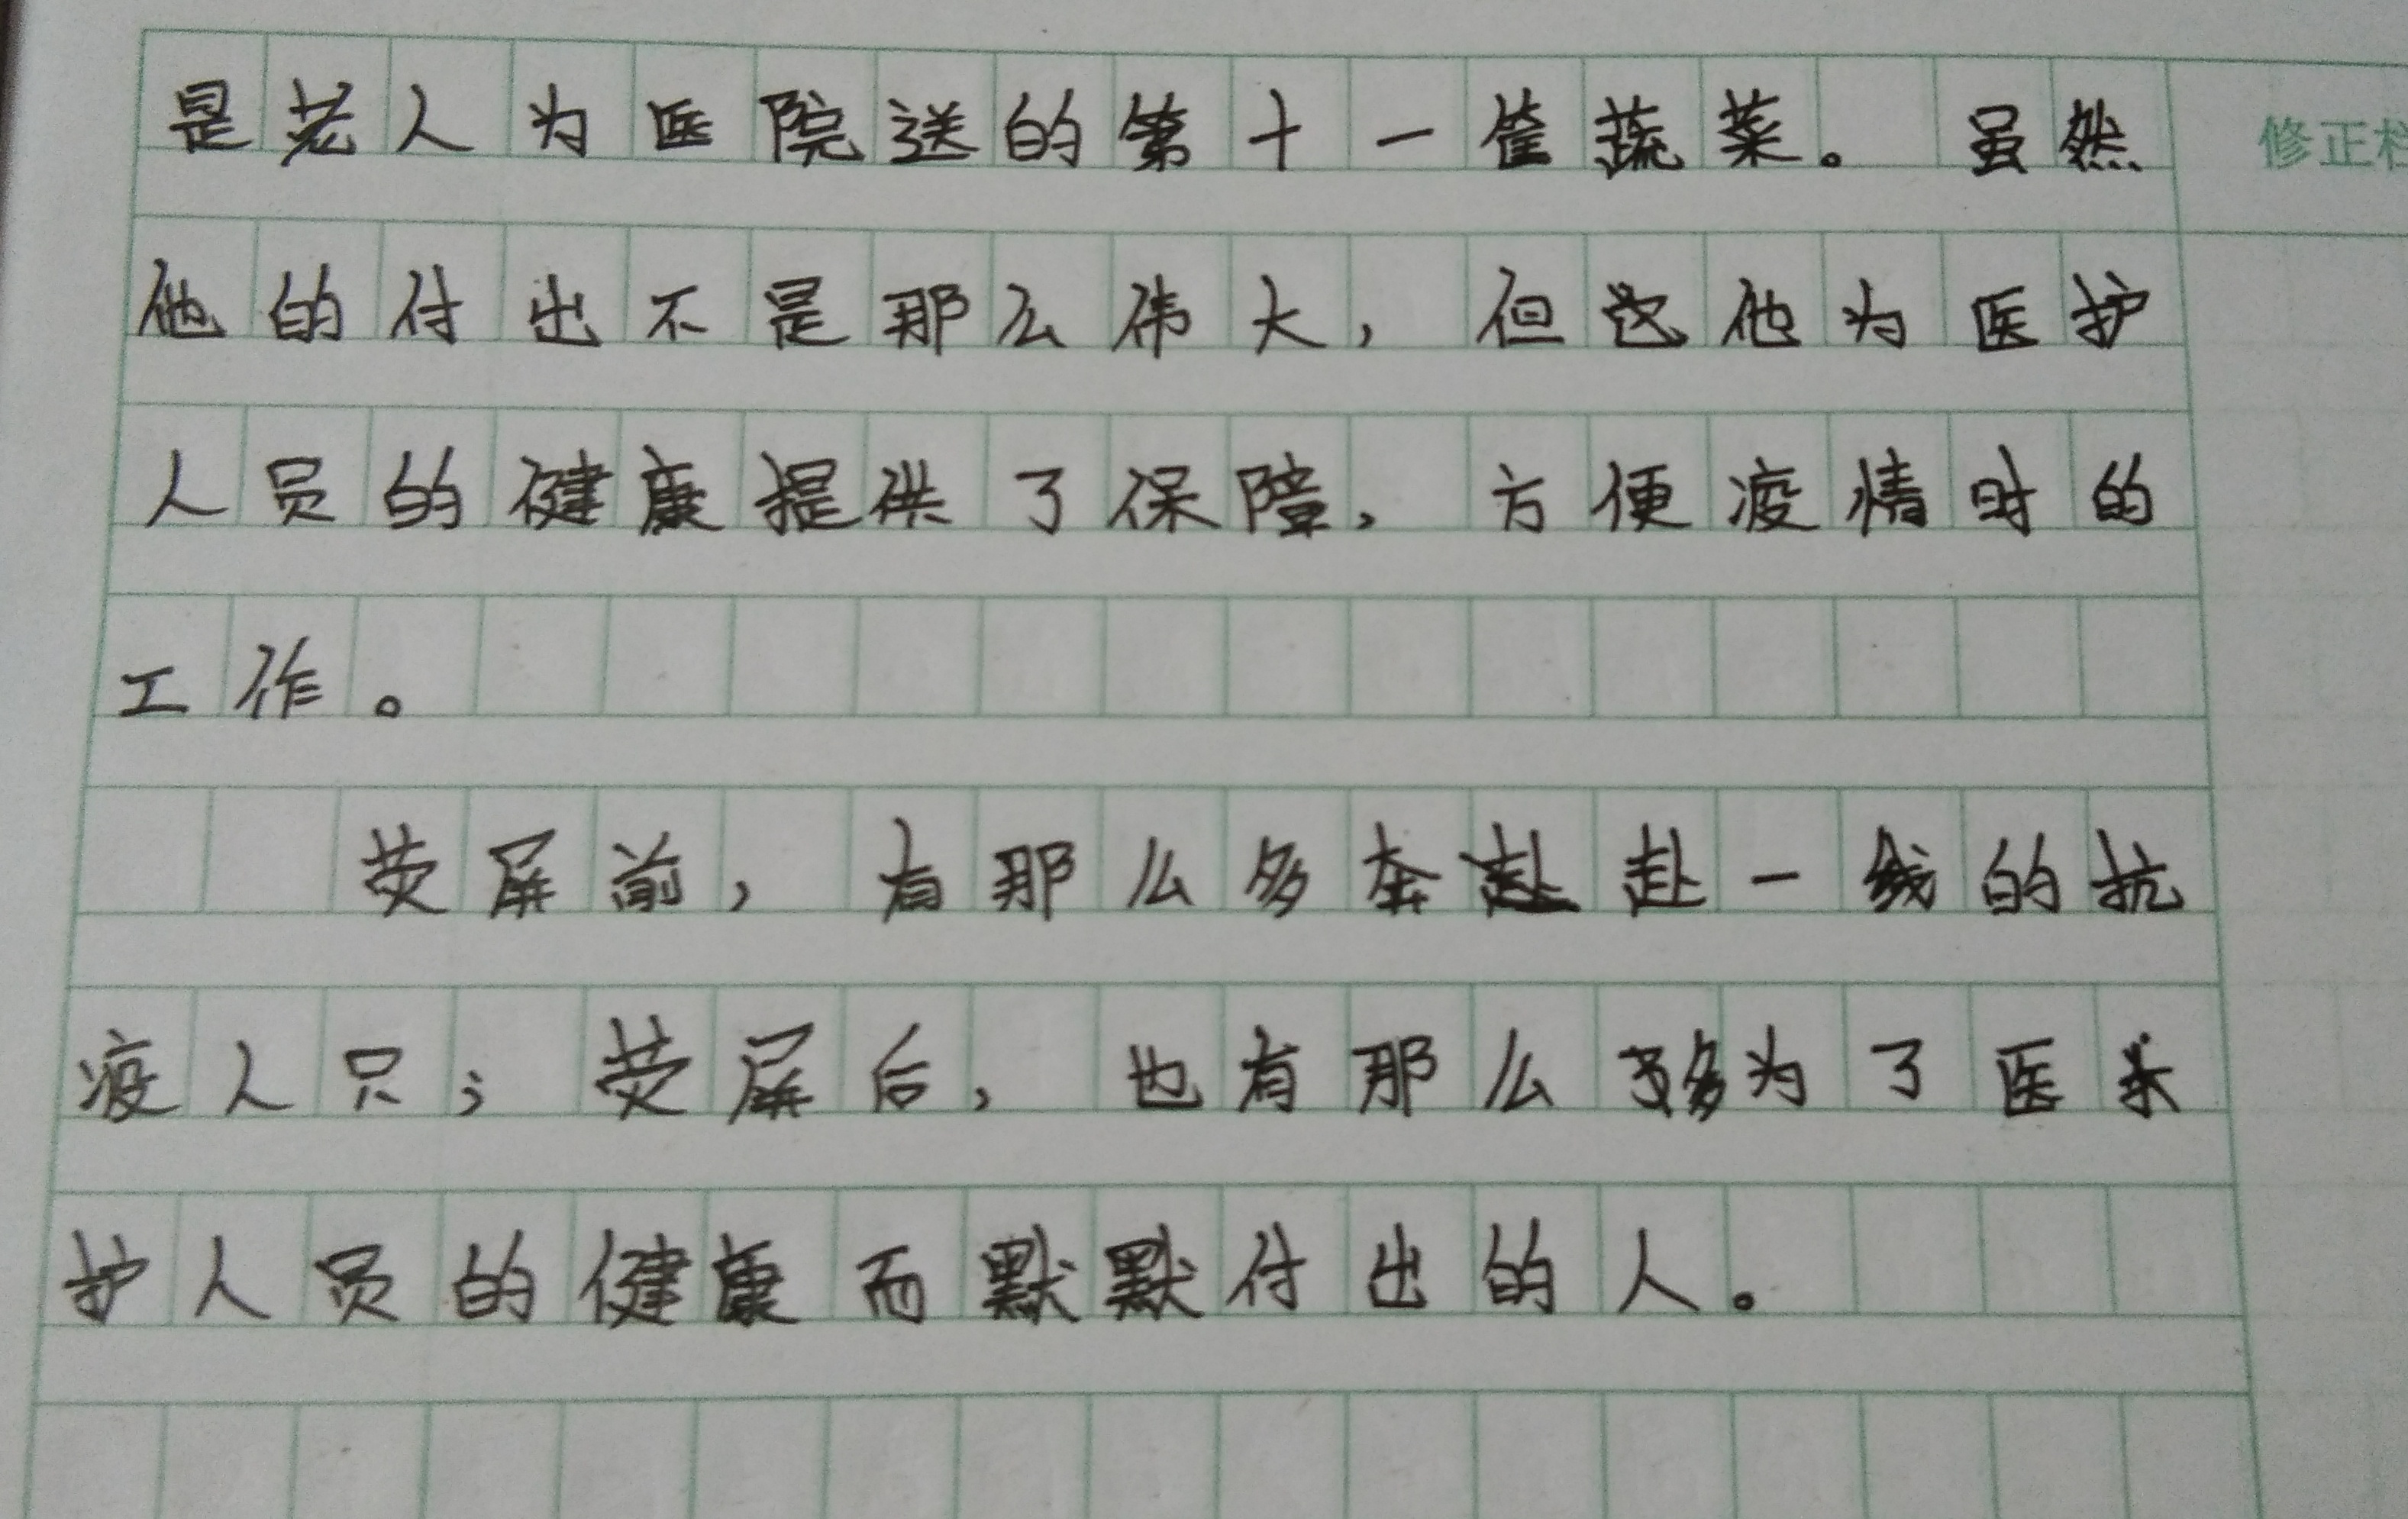 是老人为医院送的第十一筐蔬菜。虽然
修正栏
他的付出不是那么伟大，但这他为医护
人员的健康提供了保障，方便疫情时的
工作。
荧屏前，有那么多奔赴一线的抗
疫人只；荧屏后，也有那么多为了医
护人员的健康而默默付出的人。